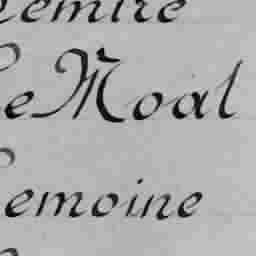 Lemire
Le Moal
Lemoine